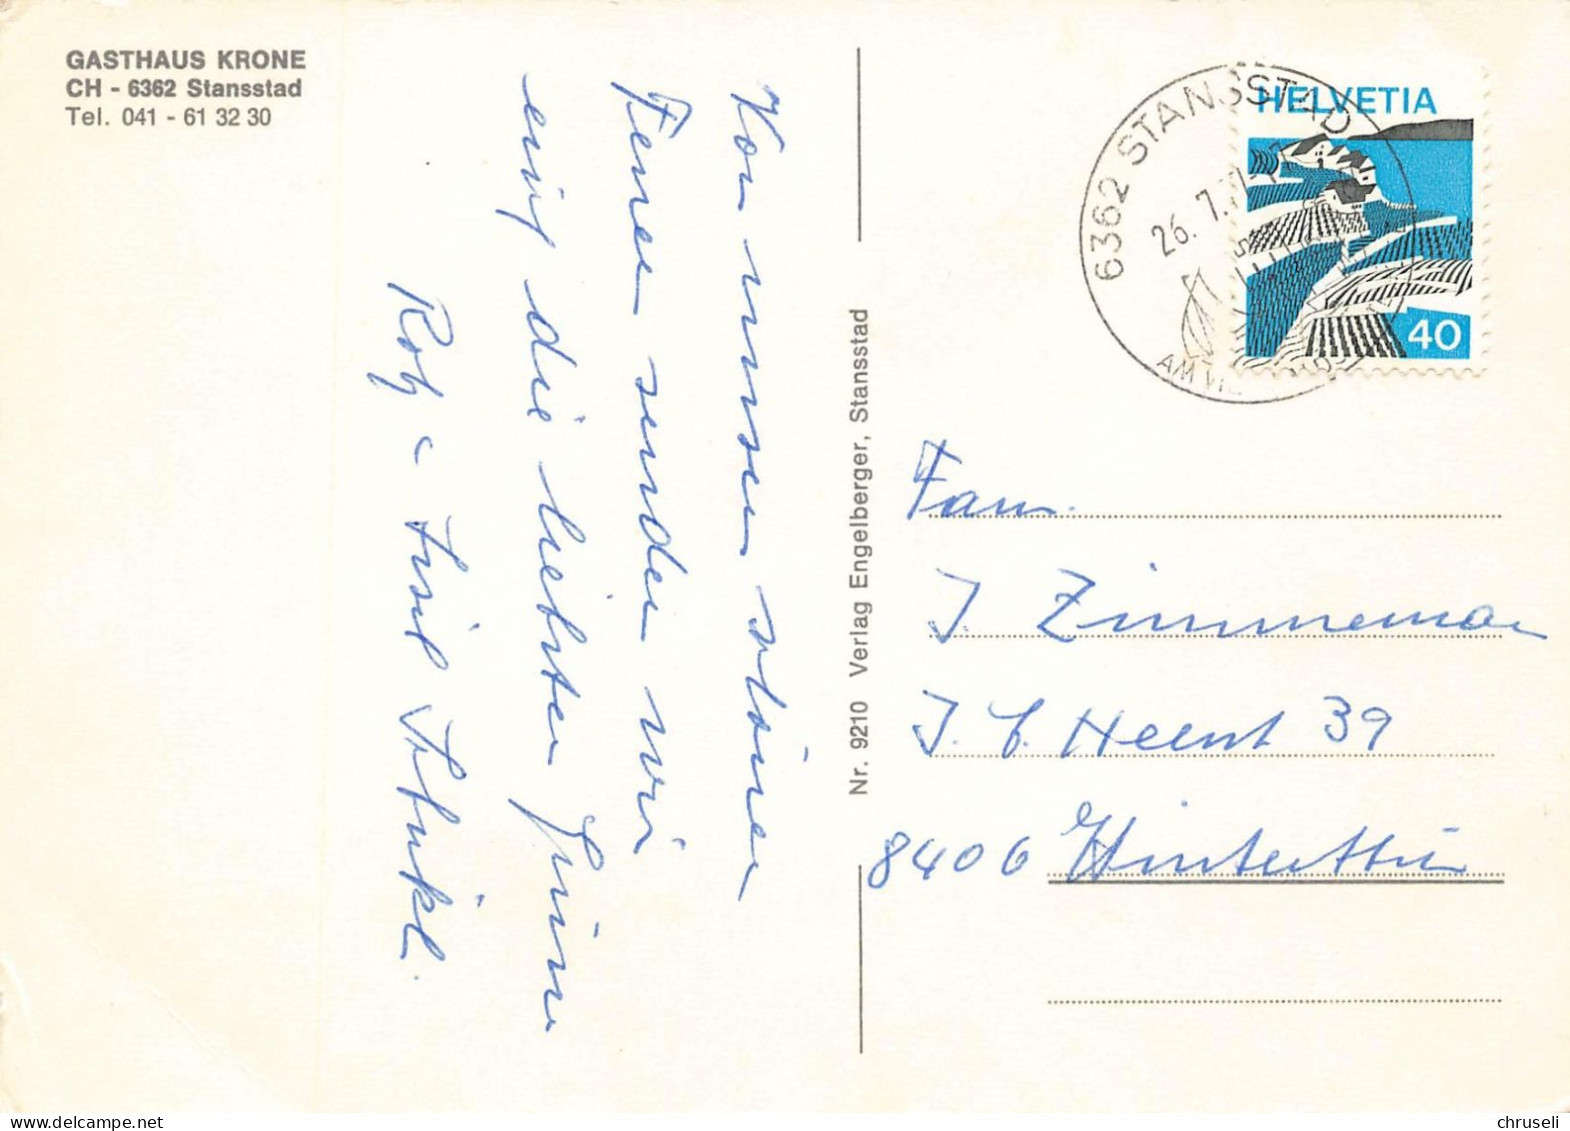 GASTHAUS KRONE
CH - 6362 Stansstad
Tel. 041 - 61 32 30
Von unsern schönen
Ferien senden wir
euch die liebsten Grüsse
Nr. 9210 Verlag Engelberger, Stansstad
6362 STANSSTAD
26. 7.
AM
HELVETIA
40
Fam.
J. Zimmerman
J. C. Heerst 39
8406 Winterthur
chruseli